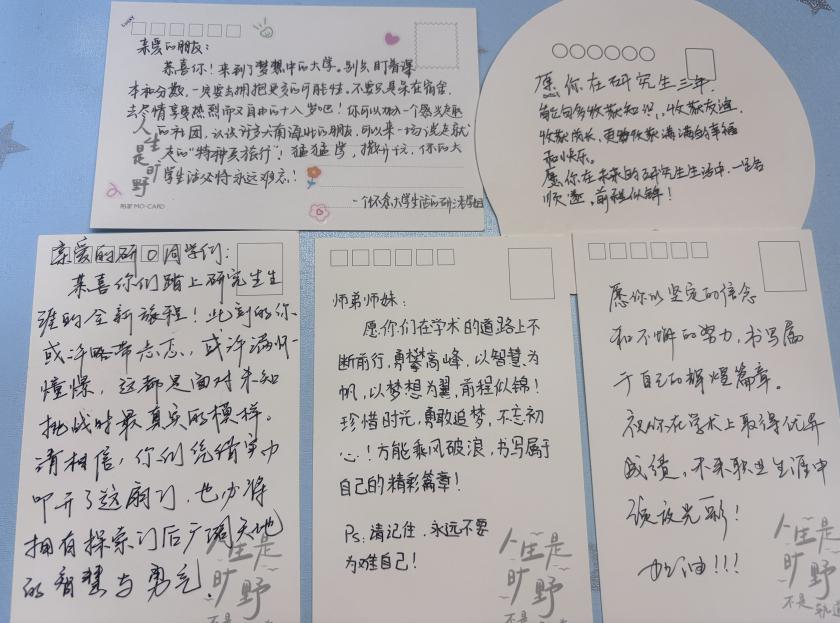 LUCKY
亲爱的朋友：
恭喜你！来到了梦想中的大学。别只盯着课
本和分数，一定要去拥抱更多的可能性。不要只是呆在宿舍，
去尽情享受热烈而又自由的十八岁吧！你可以加入一个感兴趣
的社团，认识许多天南海北的朋友，可以来一场说走就
走的“特种兵旅行”！猛猛学，撒开行，你的大
学生活必将永远难忘！
一个怀念大学生活的研
人生是旷野
陌墨 MO-CARD
愿你在研究生三年，
能包多收获知识，收获友谊，
收获成长，更能收获满满的幸福
和快乐。
愿你在未来的研究生生活中，一路
顺遂，前程似锦！
亲爱的研0同学们：
恭喜你们踏上研究生生
涯的全新旅程！此刻的你
或许略带忐忑，或许满怀
憧憬，这都是面对未知
挑战时最真实的模样。
请相信，你们凭借实力
叩开了这扇门，也亦将
拥有探索门后广阔天地
的智慧与勇气。
人生是
旷野
不是
师弟师妹：
愿你们在学术的道路上不
断前行，勇攀高峰，以智慧为
帆，以梦想为翼，前程似锦！
珍惜时光，勇敢追梦，不忘初
心！方能乘风破浪，书写属于
自己的精彩篇章！
Ps：请记住，永远不要
为难自己！
人生是
旷野
不是
愿你以坚定的信念
和不懈的努力，书写属
于自己的辉煌篇章。
祝你在学术上取得优异
成绩，未来职业生涯中
绽放光彩！
加油！！！
人生是
旷野
不是轨道